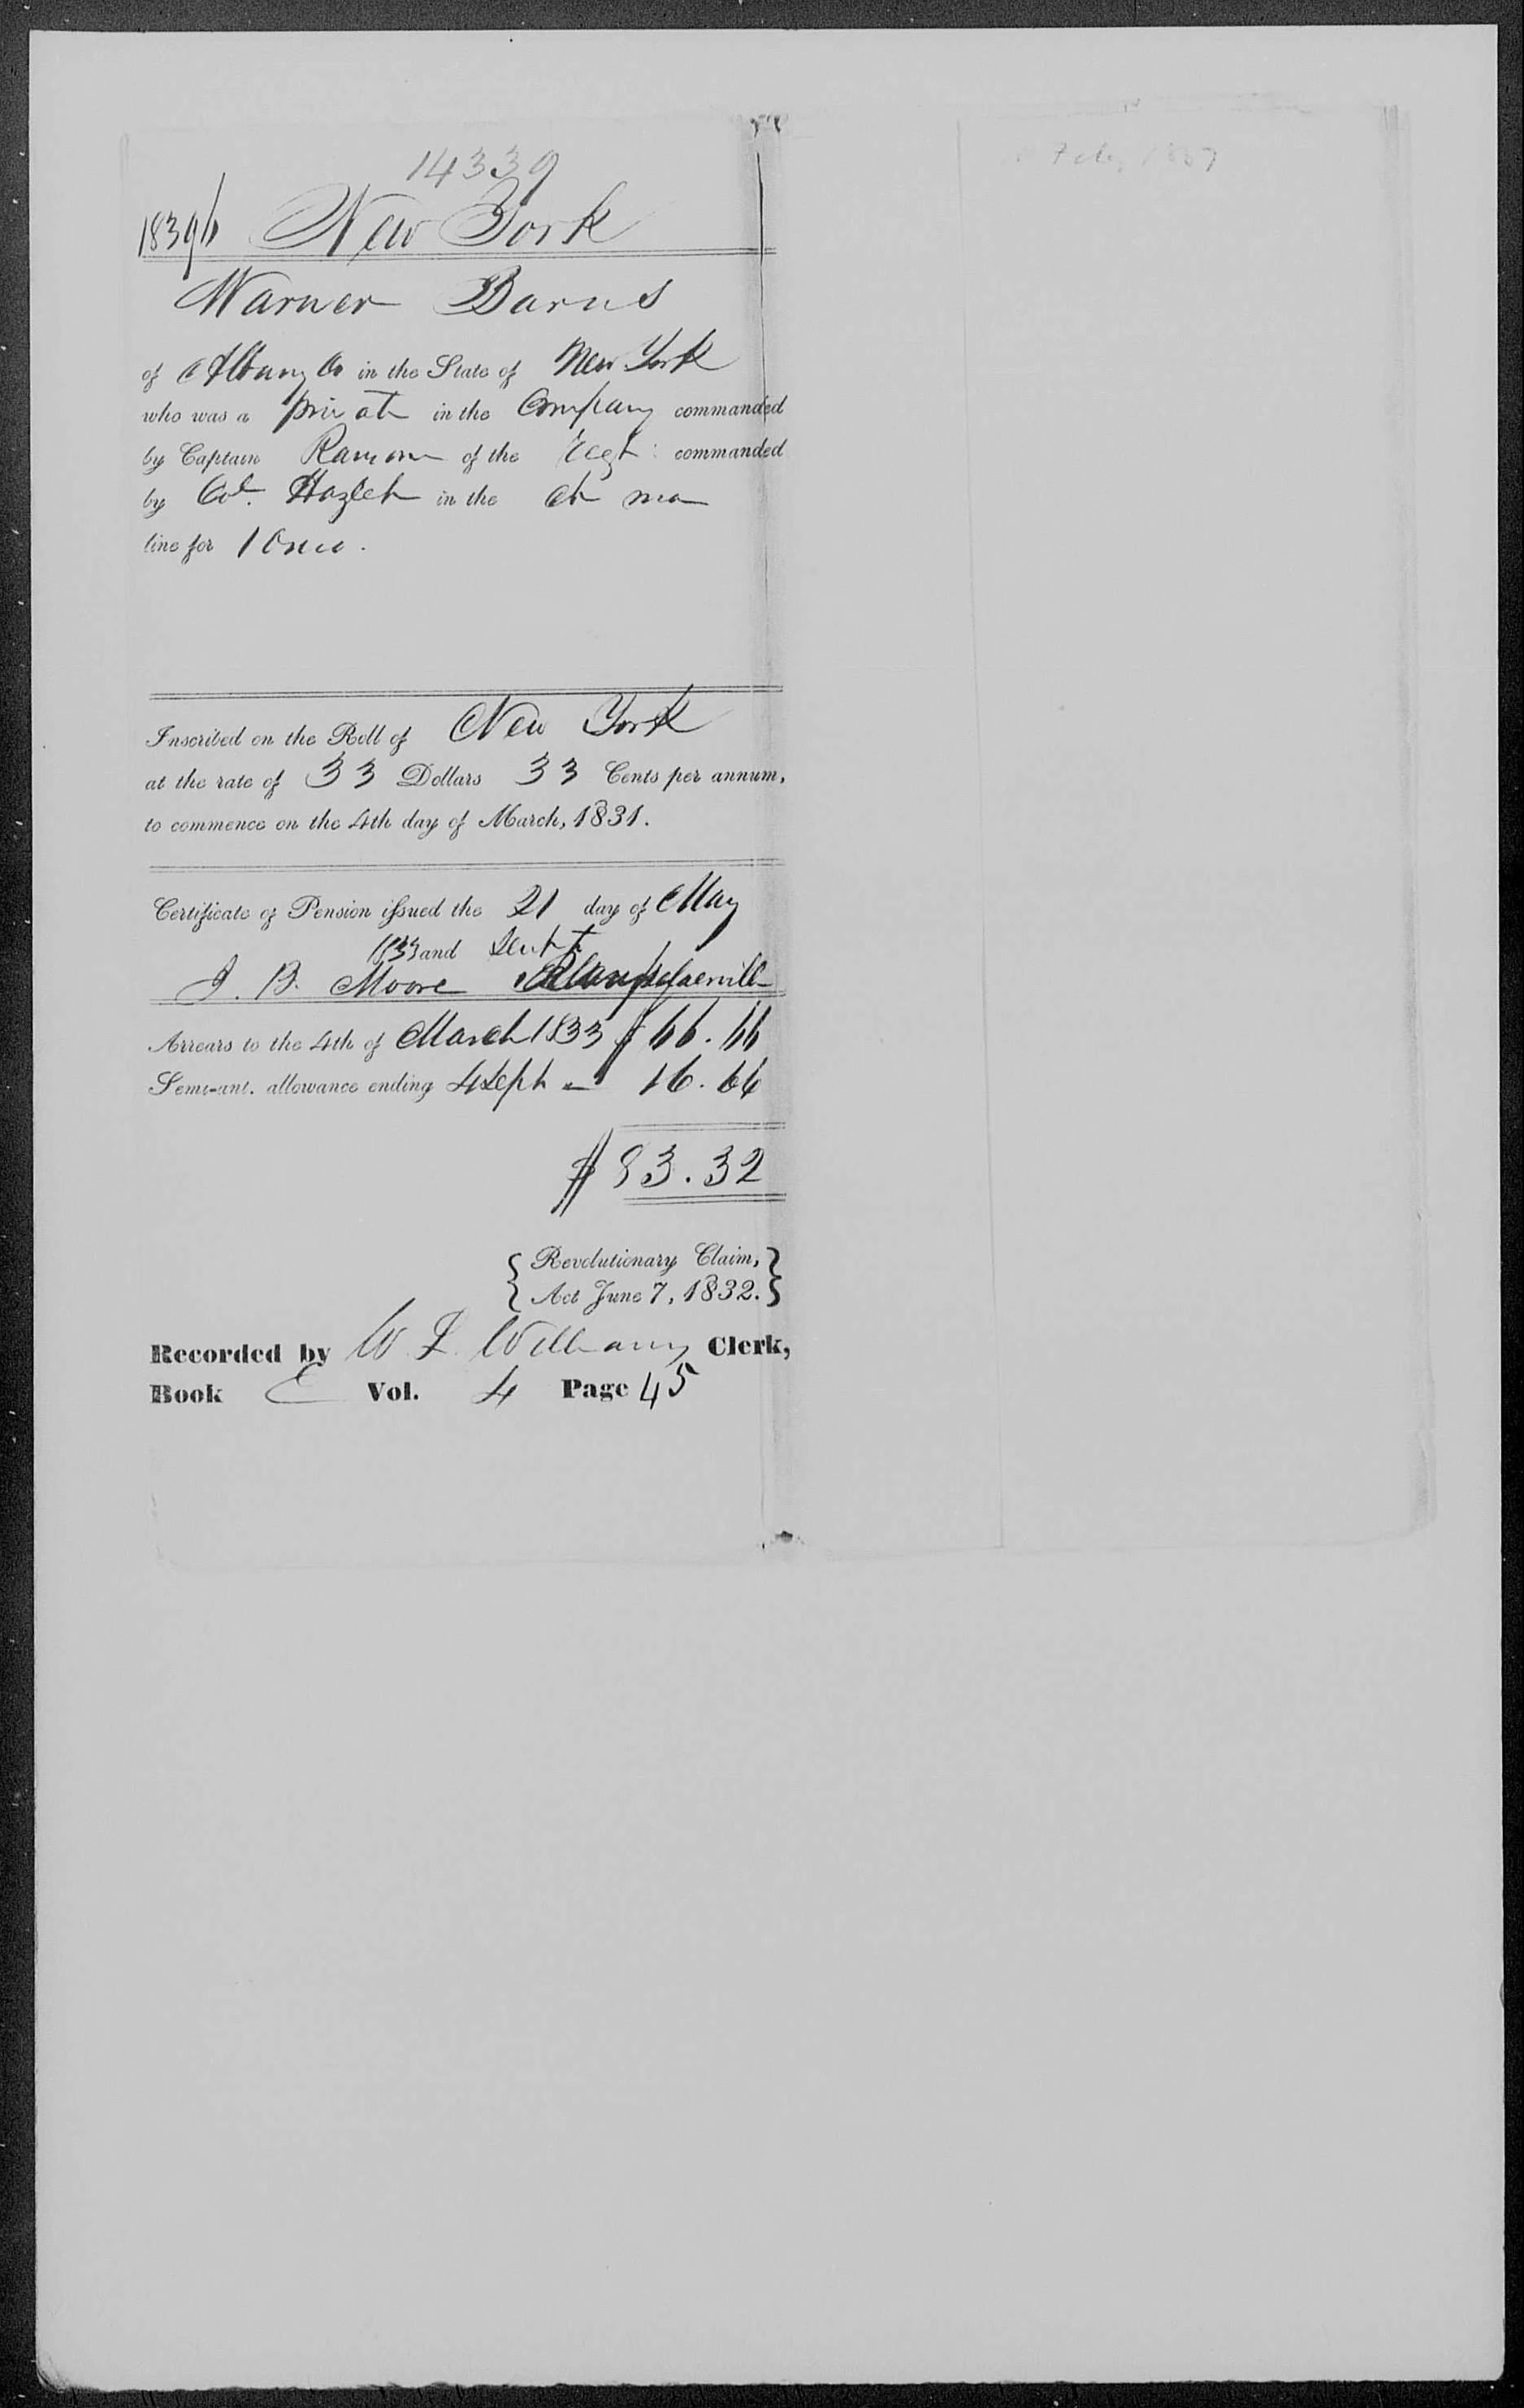 14339
New York
Warner Barns
of Albany Co in the State of New York
who was a private in the Company commanded
by Captain Ransom of the Regt commanded
by Col. Hazlet in the
line for 10 mo.
Inscribed on the Roll of New York
at the rate of 33 Dollars 33 Cents per annum,
to commence on the 4th day of March, 1831.
Certificate of Pension issued the 21 day of May
1833 and sent
J. B. Moore
Arrears to the 4th of March 1833 $ 66.66
Semi-anl. allowance ending 4 Sept 16.66
$ 83.32
{ Revolutionary Claim, }
{ Act June 7, 1832. }
Recorded by W. L. Williams Clerk,
Book E Vol. 4 Page 45